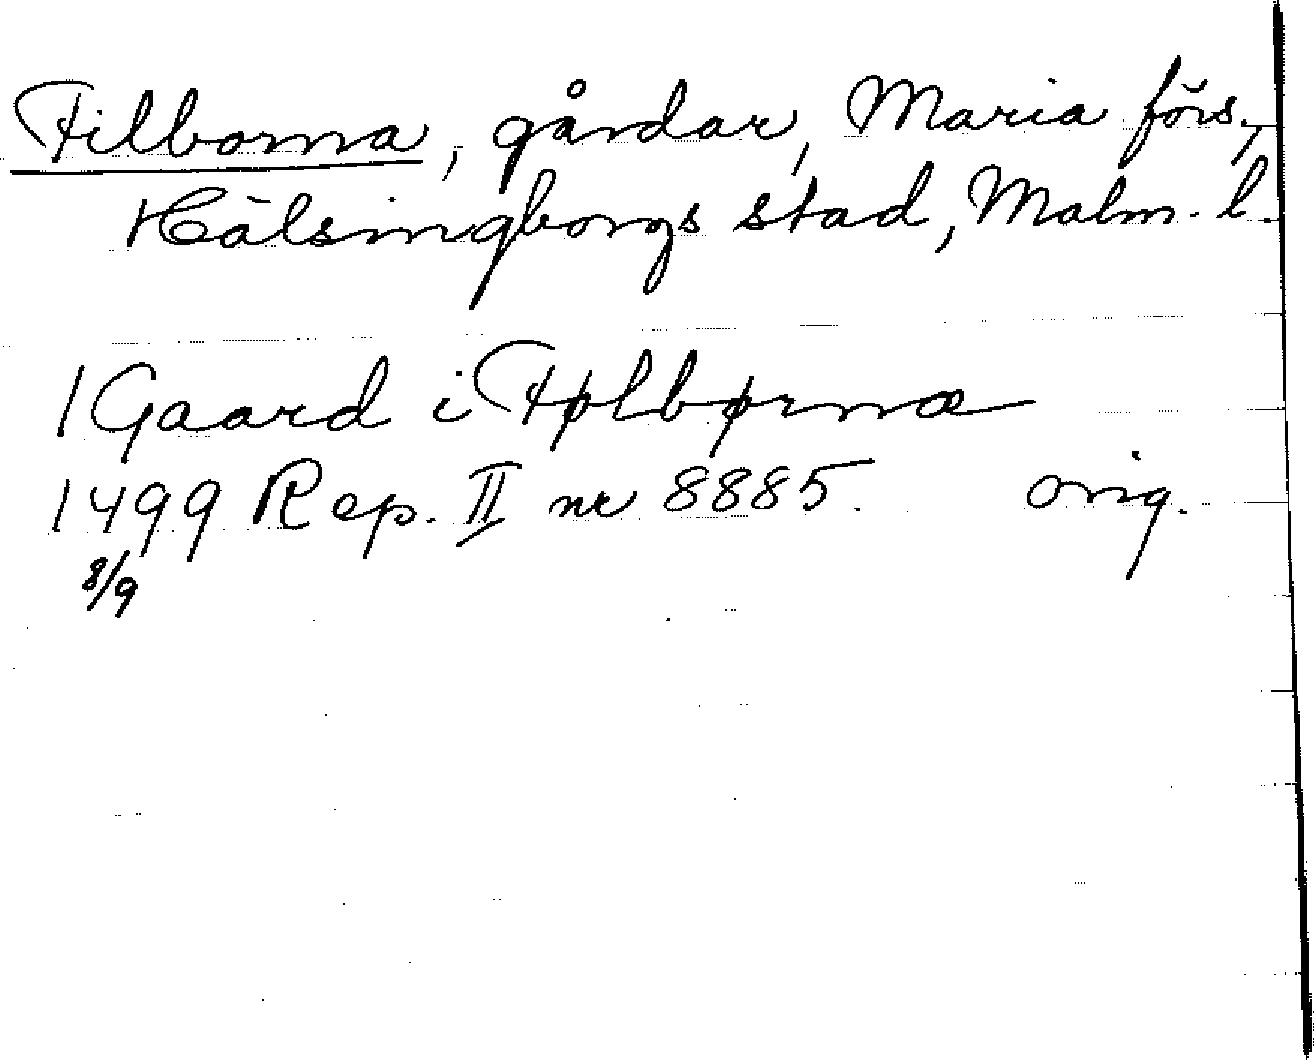 Filborna, gårdar, Maria förs.,
Hälsingborgs stad, Malm. l.
1 Gaard i Følbørnæ
1499 Rep. II nr 8885. orig.
8/9